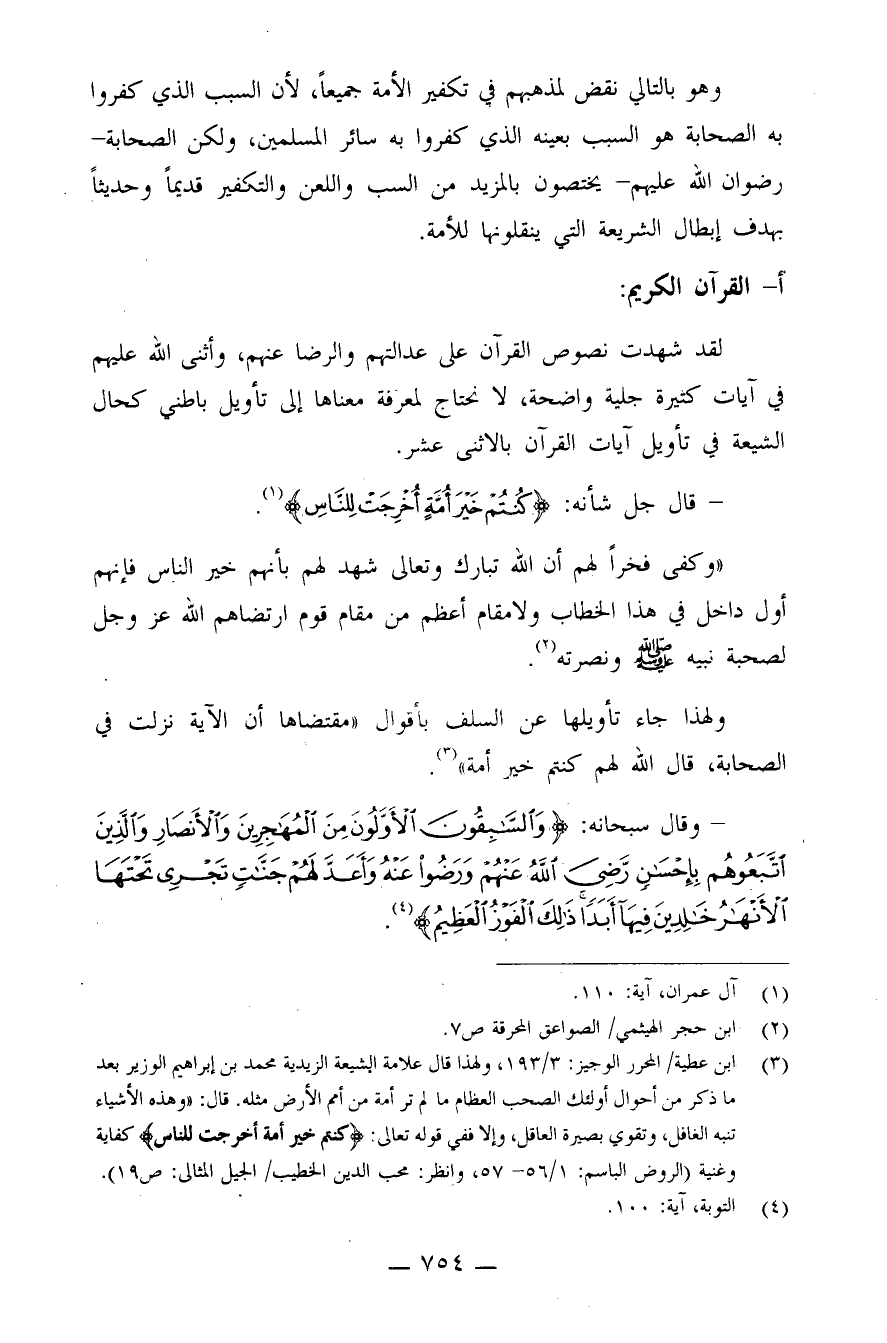 وهو بالتالي نقض لمذهبهم في تكفير الأمة جميعاً، لأن السبب الذي كفروا
به الصحابة هو السبب بعينه الذي كفروا به سائر المسلمين، ولكن الصحابة–
رضوان الله عليهم– يختصون بالمزيد من السب واللعن والتكفير قديماً وحديثاً
بهدف إبطال الشريعة التي ينقلونها للأمة.
أ– القرآن الكريم:
لقد شهدت نصوص القرآن على عدالتهم والرضا عنهم، وأثنى الله عليهم
في آيات كثيرة جلية واضحة، لا نحتاج لمعرفة معناها إلى تأويل باطني كحال
الشيعة في تأويل آيات القرآن بالاثنى عشر.
– قال جل شأنه: ﴿كُنتُمْ خَيْرَ أُمَّةٍ أُخْرِجَتْ لِلنَّاسِ﴾(١).
«وكفى فخراً لهم أن الله تبارك وتعالى شهد لهم بأنهم خير الناس فإنهم
أول داخل في هذا الخطاب ولامقام أعظم من مقام قوم ارتضاهم الله عز وجل
لصحبة نبيه ﷺ ونصرته(٢).
ولهذا جاء تأويلها عن السلف بأقوال «مقتضاها أن الآية نزلت في
الصحابة، قال الله لهم كنتم خير أمة»(٣).
– وقال سبحانه: ﴿وَٱلسَّٰبِقُونَ ٱلْأَوَّلُونَ مِنَ ٱلْمُهَٰجِرِينَ وَٱلْأَنصَارِ وَٱلَّذِينَ
ٱتَّبَعُوهُم بِإِحْسَٰنٍ رَّضِىَ ٱللَّهُ عَنْهُمْ وَرَضُوا۟ عَنْهُ وَأَعَدَّ لَهُمْ جَنَّٰتٍ تَجْرِى تَحْتَهَا
ٱلْأَنْهَٰرُ خَٰلِدِينَ فِيهَآ أَبَدًا ۚ ذَٰلِكَ ٱلْفَوْزُ ٱلْعَظِيمُ﴾(٤).
(١) آل عمران، آية: ١١٠.
(٢) ابن حجر الهيثمي/ الصواعق المحرقة ص٧.
(٣) ابن عطية/ المحرر الوجيز: ١٩٣/٣، ولهذا قال علامة الشيعة الزيدية محمد بن إبراهيم الوزير بعد
ما ذكر من أحوال أولئك الصحب العظام ما لم تر أمة من أمم الأرض مثله. قال: «وهذه الأشياء
تنبه الغافل، وتقوي بصيرة العاقل، وإلا ففي قوله تعالى: ﴿كنتم خير أمة أخرجت للناس﴾ كفاية
وغنية (الروض الباسم: ٥٦/١– ٥٧، وانظر: محب الدين الخطيب/ الجيل المثالى: ص١٩).
(٤) التوبة، آية: ١٠٠.
— ٧٥٤ —